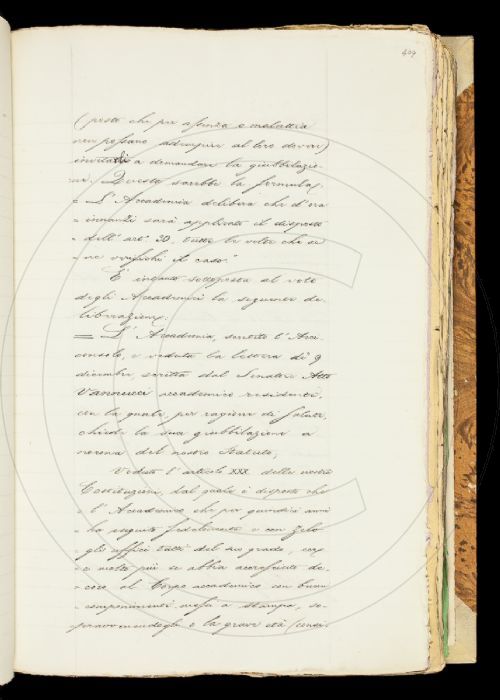 409
(posto che per assenza o malattia
non possano adempire al loro dovere)
invitarli a domandare la giubbilazio-
ne. Questa sarebbe la formula:
= L'Accademia delibera che d'ora
= innanzi sarà applicato il disposto
= dell' art.° 30. tutte le volte che se
= ne verifichi il caso."
E' intanto sottoposta al voto
degli Accademici la seguente de-
liberazione.
= L' Accademia, sentito l' Arci-
consolo, e veduta la lettera di' 9
dicembre, scritta dal Senatore Atto
Vannucci accademico residente,
con la quale, per ragione di salute,
chiede la sua giubbilazione a
norma del nostro Statuto;
Veduto l' articolo XXX. delle nostre
Costituzioni, dal quale è disposto che
= l' Accademico che per quindici anni
= ha eseguito fedelmente e con zelo
= gli uffici tutti del suo grado, con-
= e molto più se abbia accresciuto de-
= coro al Corpo accademico con buoni
= componimenti messi a stampa, so-
pravvenendogli o la grave età (consi-